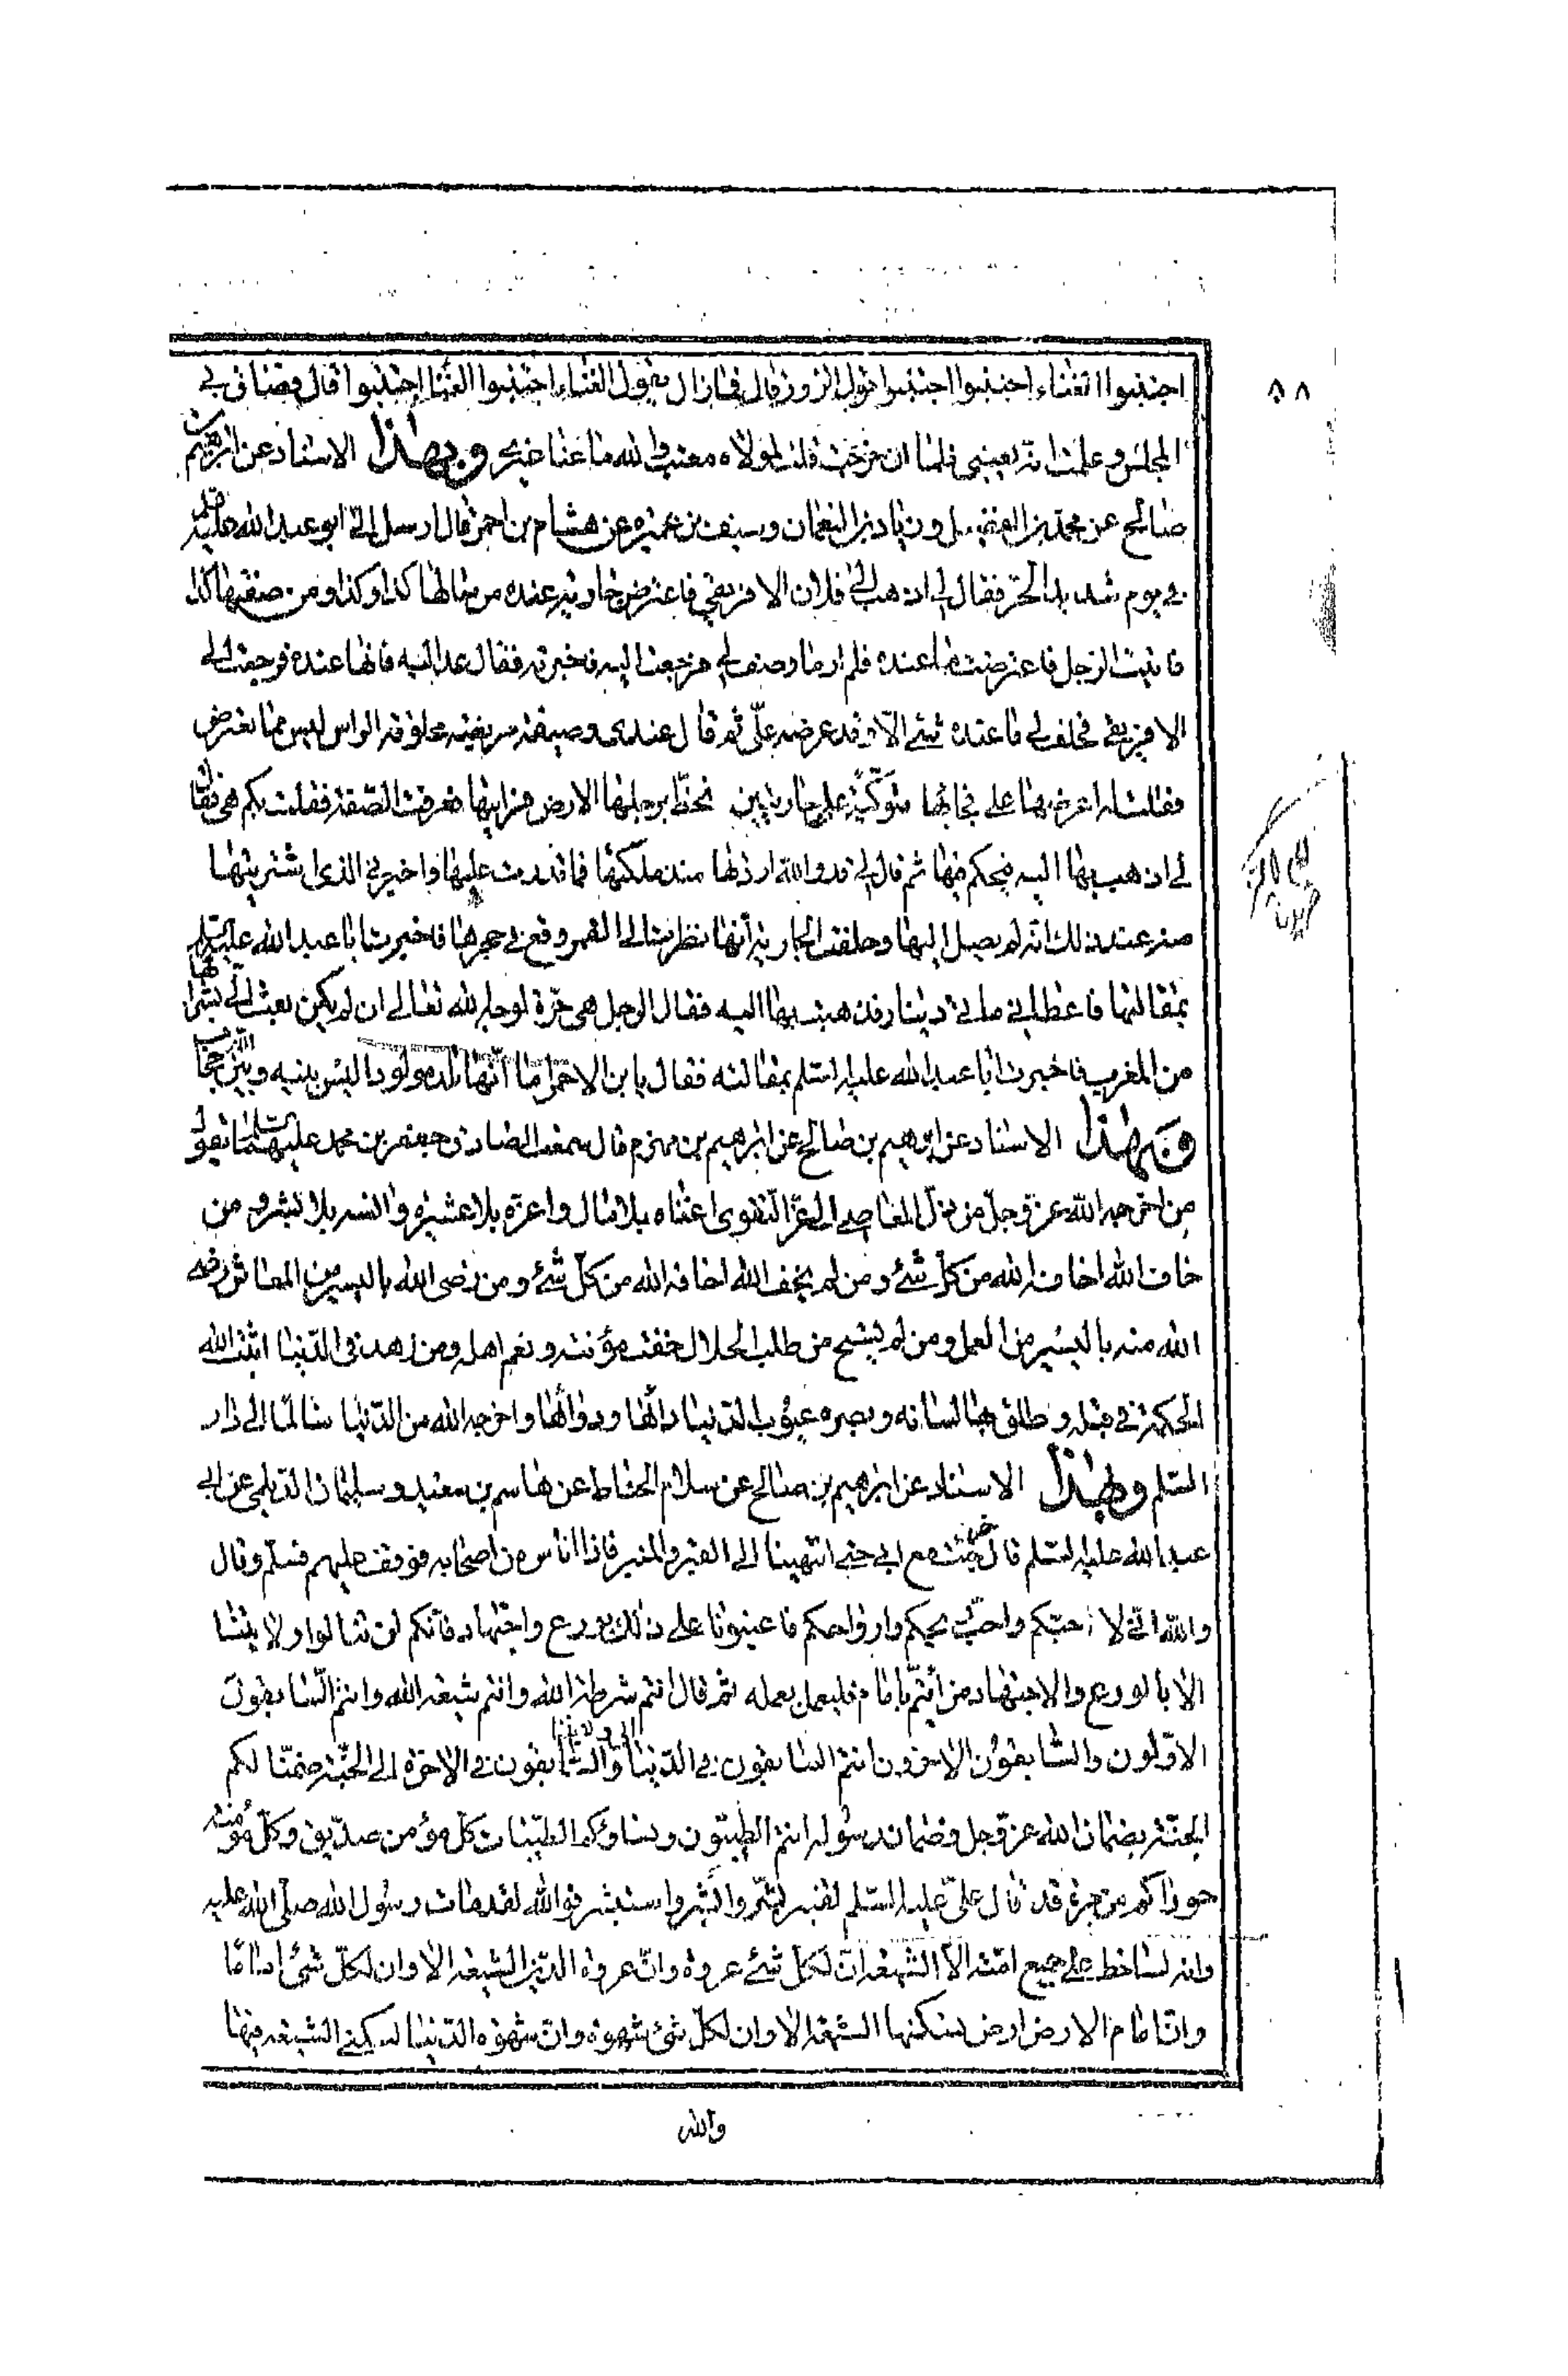 ٥٨
اجتنبوا الغناء اجتنبوا اجتنبوا قول الزور قال فما زال يقول الغناء اجتنبوا الغنا اجتنبوا قال فضاق بي
المجلس وعلمت انه يعنيني فلما ان خرجت قلت لمولاه معتب والله ما عنا غيري وبهذا الاسناد عن ابرهيم بن
صالح عن محمد بن الفضيل وزياد بن النعمان وسيف بن عميره عن هشام بن احمر قال ارسل الي ابو عبد الله عليه السلم
في يوم شديد الحر فقال لي اذهب الى فلان الافريقي فاعترض جارية عنده من حالها كذا وكذا ومن صفتها كذا
فاتيت الرجل فاعترضت ما عنده فلم ار ما وصف لي فرجعت اليه فاخبرته فقال عد اليه فانها عنده فرجعت الى
الافريقي فحلف لي ما عنده شئ الا وقد عرضه علي ثم قال عندى وصيفة مريضة محلوقة الراس ليس مما يعترض
فقلت له اعرضها علي فجائها متوكئة على جاريتين تخط برجليها الارض فارانيها فعرفت الصفة فقلت بكم هي فقال
لي اذهب بها اليه فيحكم فيها ثم قال لي قد والله اردتها منذ ملكتها فما قدرت عليها واخبرني الذى اشتريتها
منه عند ذلك انه لم يصل اليها وحلفت الجارية انها نظرت الى القمر وقع في حجرها فاخبرت ابا عبد الله عليه السلم
بمقالتها فاعطاني مائتي دينار فذهبت بها اليه فقال الرجل هي حرة لوجه الله تعالى ان لم يكن بعث الي بشرائها
من المغرب فاخبرت ابا عبد الله عليه السلم بمقالته فقال يا بن الاحمر اما انها تلد مولودا ليس بينه وبين الله حجاب
وبهذا الاسناد عن ابرهيم بن صالح عن ابرهيم بن مهزم قال سمعت الصادق جعفر بن محمد عليهما السلم يقول
من اخرجه الله عز وجل من ذل المعاصي الى عز التقوى اغناه بلا مال واعزه بلا عشيرة وانسه بلا بشر ومن
خاف الله اخاف الله من كل شئ ومن لم يخف الله اخافه الله من كل شئ ومن رضى الله باليسير من المعاش رضى
الله منه باليسير من العمل ومن لم يستح من طلب الحلال خفت مؤنته ونعم اهله ومن زهد في الدنيا اثبت الله
الحكمة في قلبه وطلق بها لسانه وبصره عيوب الدنيا دائها ودوائها واخرجه الله من الدنيا سالما الى دار
السلم وبهذا الاسناد عن ابرهيم بن صالح عن سلام الحناط عن هاشم بن سعيد وسليمان الديلمي عن ابي
عبد الله عليه السلم قال خرجت مع ابي حتى انتهينا الى القبر والمنبر فاذا اناس من اصحابه فوقف عليهم فسلم وقال
والله اني لاحبكم واحب ريحكم وارواحكم فاعينونا على ذلك بورع واجتهاد فانكم لن تنالوا ولايتنا
الا بالورع والاجتهاد من ائتم بامام فليعمل بعمله ثم قال انتم شرطة الله وانتم شيعة الله وانتم السابقون
الاولون والسابقون الاخرون انتم السابقون في الدنيا الى ولايتنا والسابقون في الاخرة الى الجنة ضمنا لكم
الجنة بضمان الله عز وجل وضمان رسوله انتم الطيبون ونساؤكم الطيبات كل مؤمن صديق وكل مؤمنة
حوراء كم من مرة قد قال علي عليه السلم لقنبر بشر وابشر واستبشر فوالله لقد مات رسول الله صلى الله عليه
وانه لساخط على جميع امته الا الشيعة ان لكل شئ عروة وان عروة الدين الشيعة الا وان لكل شئ اماما
وان امام الارض ارض يسكنها الشيعة الا وان لكل شئ شهوة وان شهوة الدنيا لسكنى الشيعة فيها
والله